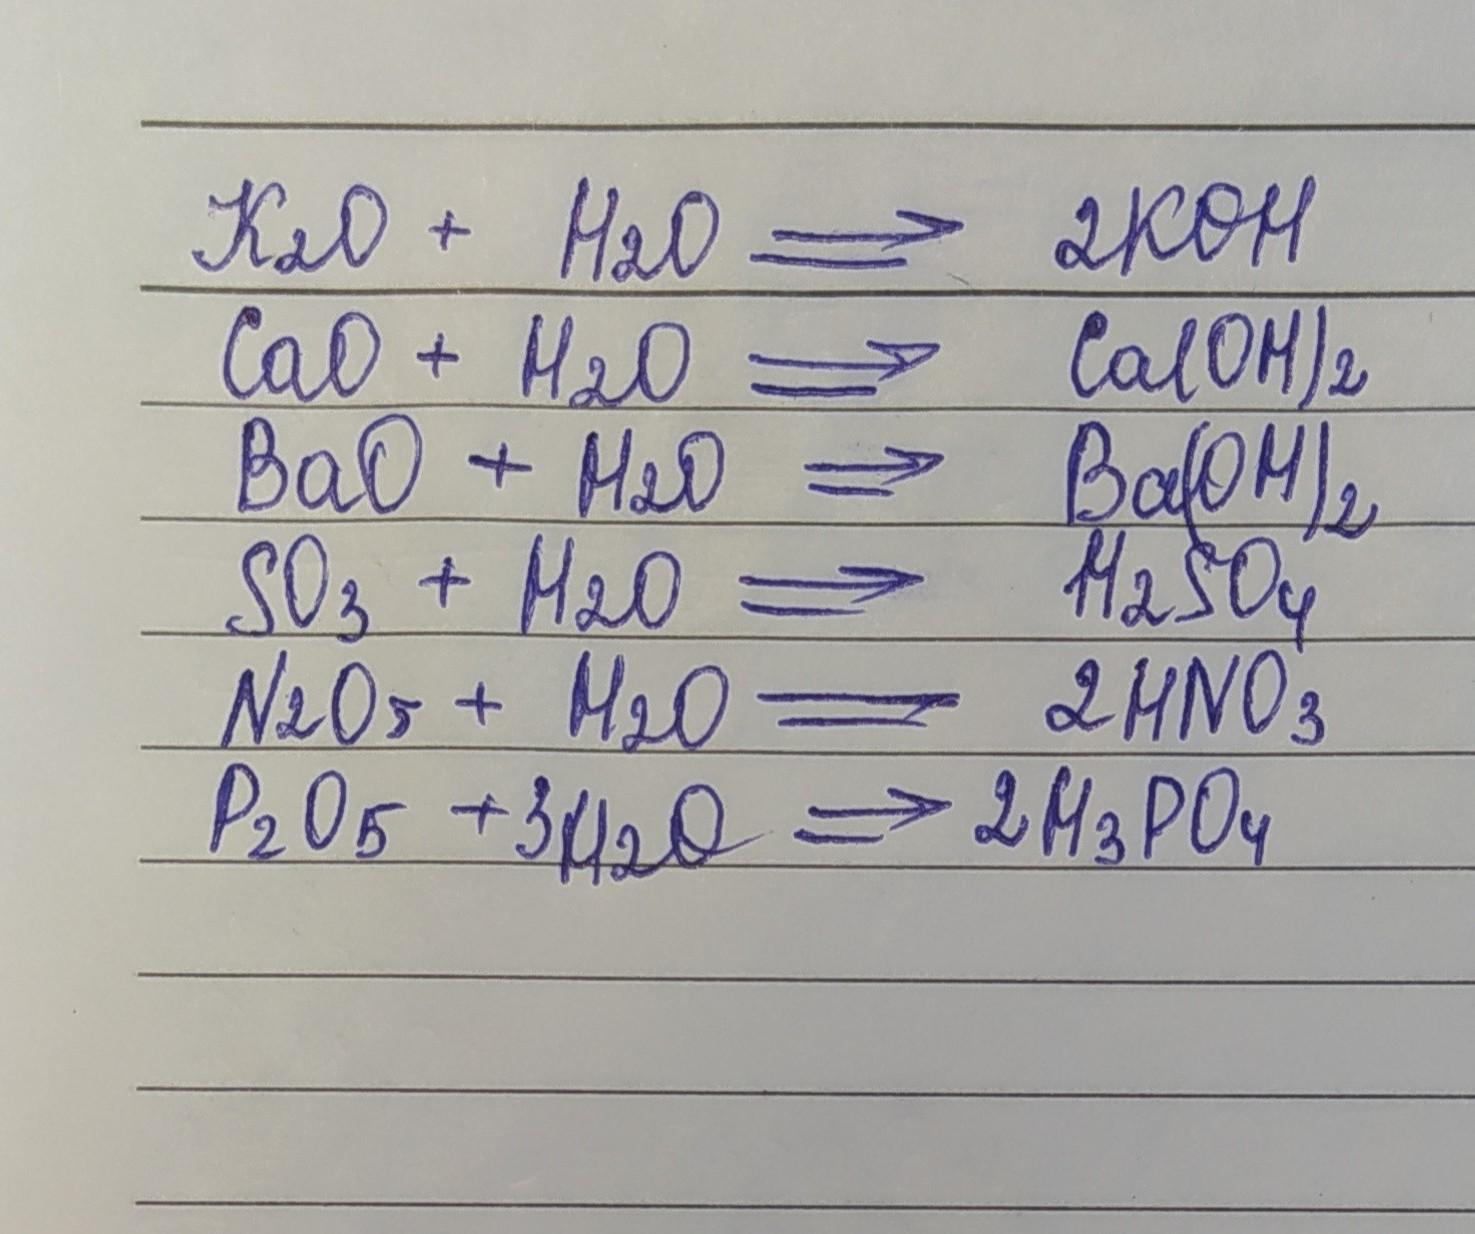 K₂O + H₂O ⇒ 2KOH
CaO + H₂O ⇒ Ca(OH)₂
BaO + H₂O ⇒ Ba(OH)₂
SO₃ + H₂O ⇒ H₂SO₄
N₂O₅ + H₂O = 2HNO₃
P₂O₅ + 3H₂O ⇒ 2H₃PO₄